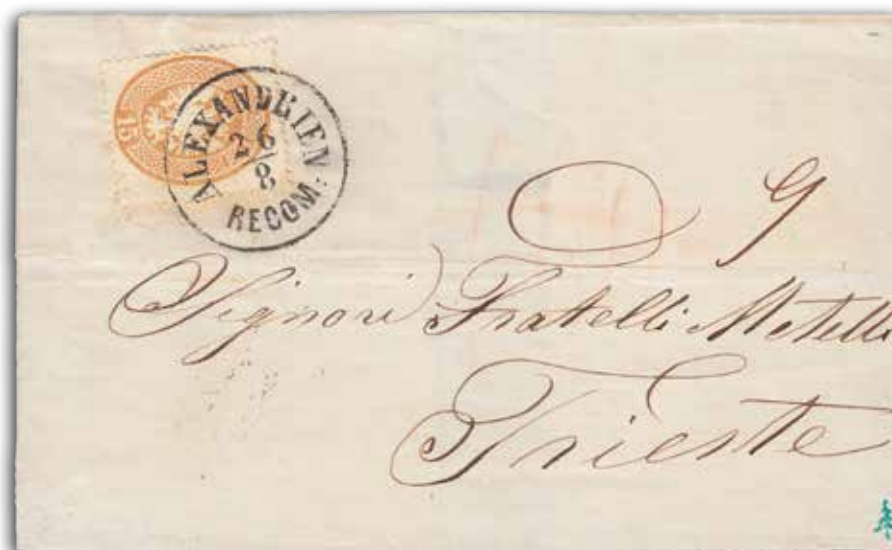 15
ALEXANDRIEN
26
8
RECOM:
Signori Fratelli Metelli
Trieste